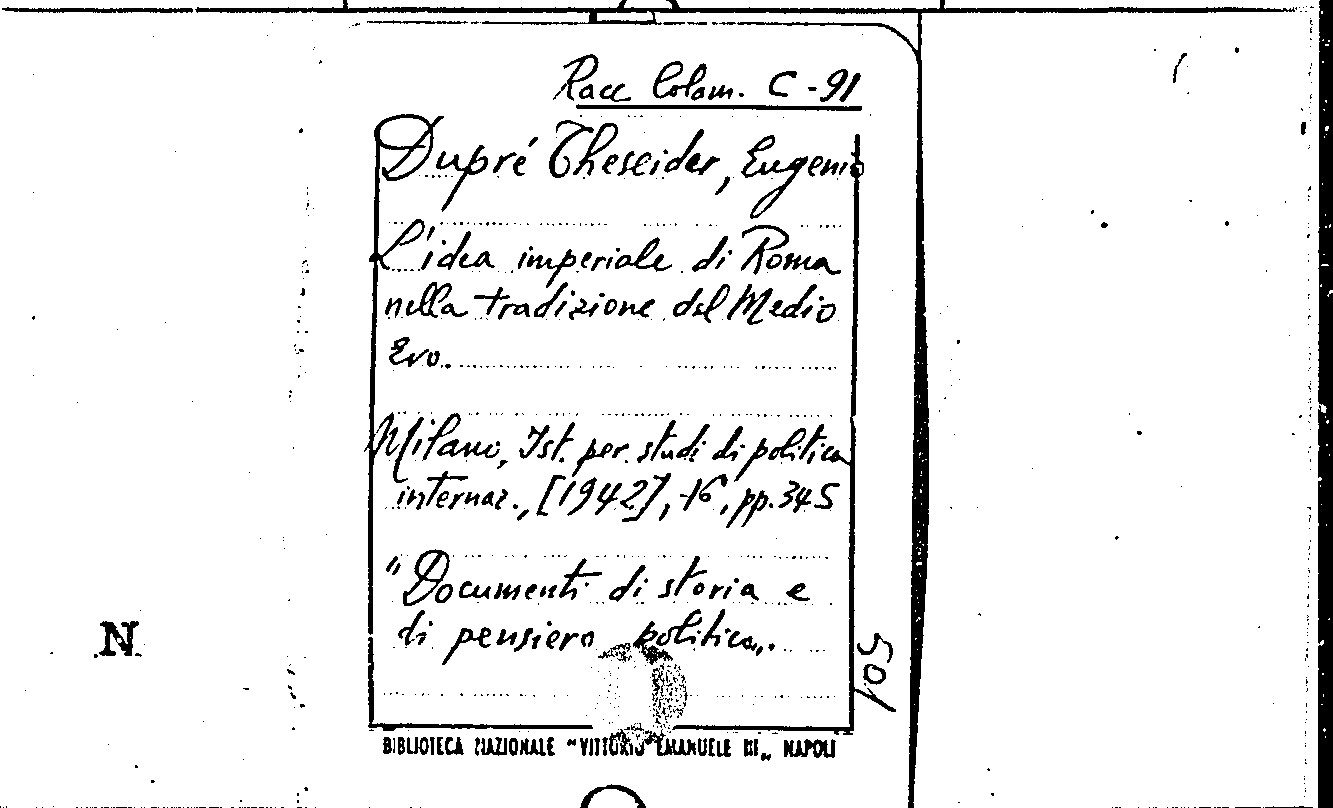 Racc Colom. C-91
Dupré Theseider, Eugenio
L'idea imperiale di Roma
nella tradizione del Medio
Evo.
Milano, Ist. per studi di politica
internaz., [1942], -16°, pp. 345
"Documenti di storia e
di pensiero politico„.
501
N
BIBLIOTECA NAZIONALE "VITTORIO EMANUELE III„ NAPOLI